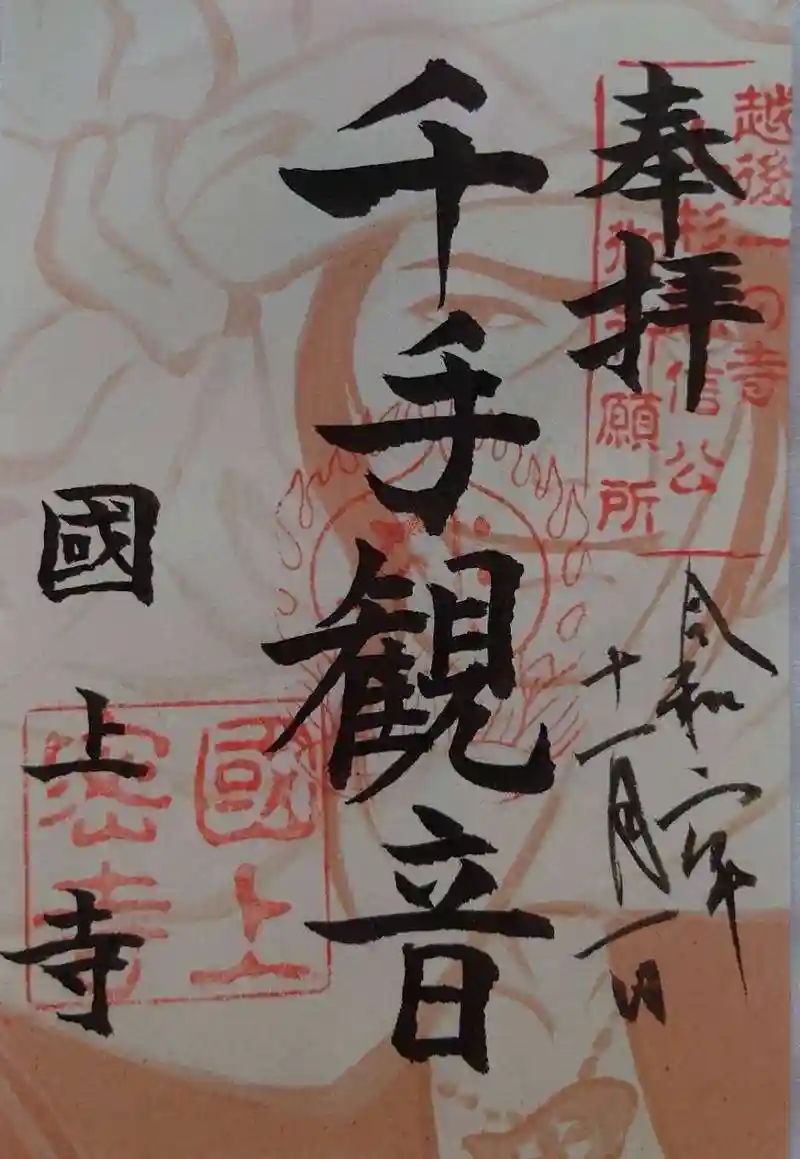 奉拝
越後一の寺
上杉謙信公
御祈願所
令和六年
十一月一日
千手観音
國上寺
國上
密寺